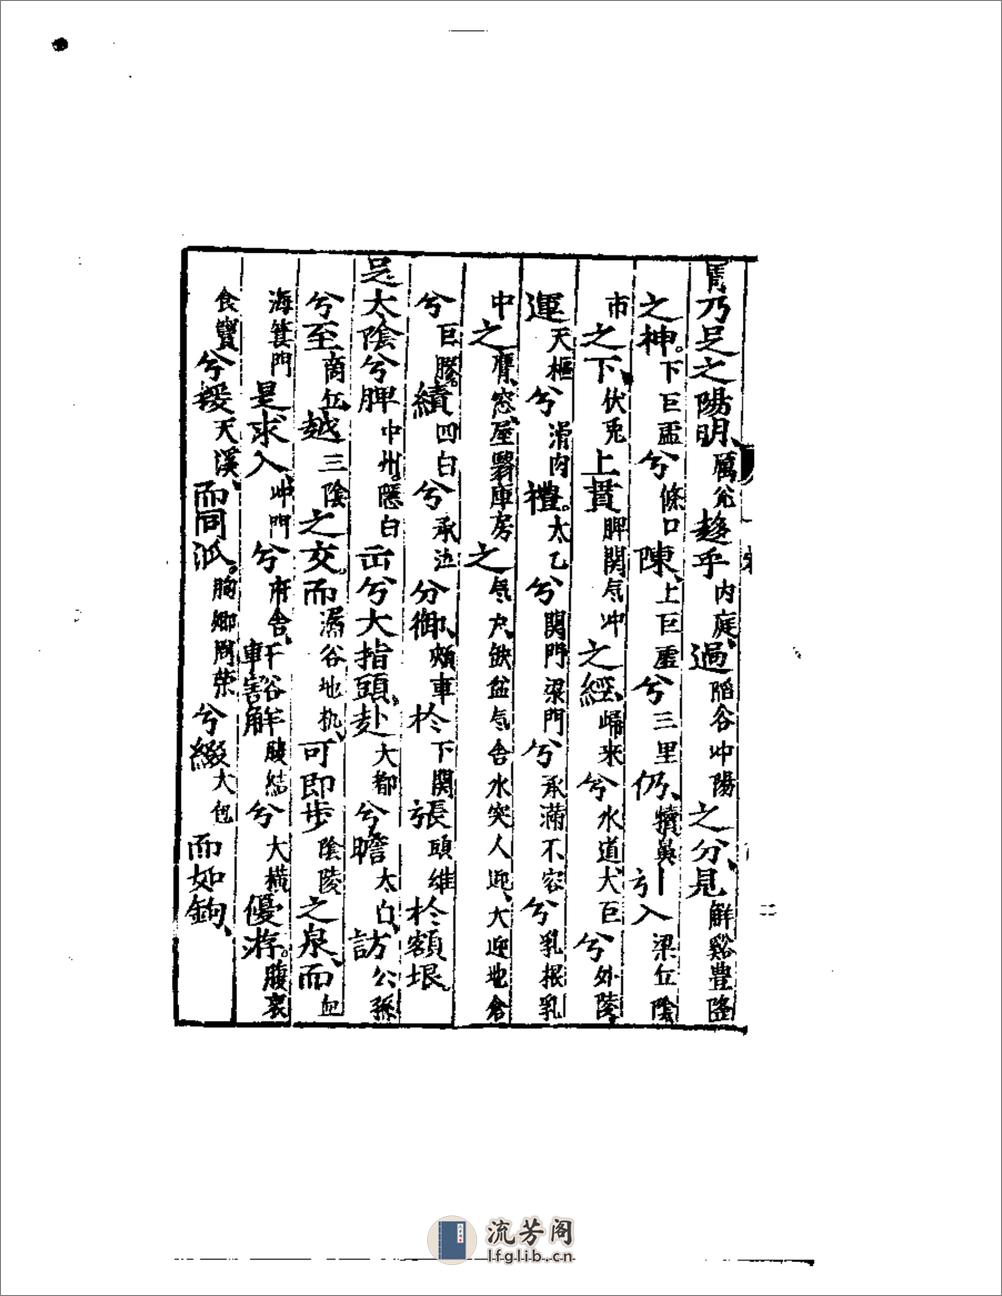 胃乃足之陽明、厲兌趍乎內庭、過陷谷冲陽之分、見解谿豊隆
之神。下巨虚兮條口陳、上巨虚兮三里仍、犢鼻引入梁丘陰
市之下、伏兎上貫脾関気冲之經、歸来兮水道大巨兮外陵
運天樞兮滑肉禮。太乙兮関門梁門兮承滿不容兮乳根乳
中之膺窓、屋翳庫房之気户、缺盆気舍水突人迎、大迎地倉
兮巨膠。續四白兮承泣分御、頰車於下関張頭維於額垠
足太陰兮脾中州。隱白出兮大指頭、赴大都兮瞻太白、訪公孫
兮至商丘、越三陰之交。而漏谷地机、可即步陰陵之泉、而血
海箕門是求入、冲門兮府舍、軒害谷解腹結兮大横優游。腹哀
食竇兮援天溪、而同泒。胸鄉周荣兮綴大包而如鉤、
二
流芳阁
lfglib.cn